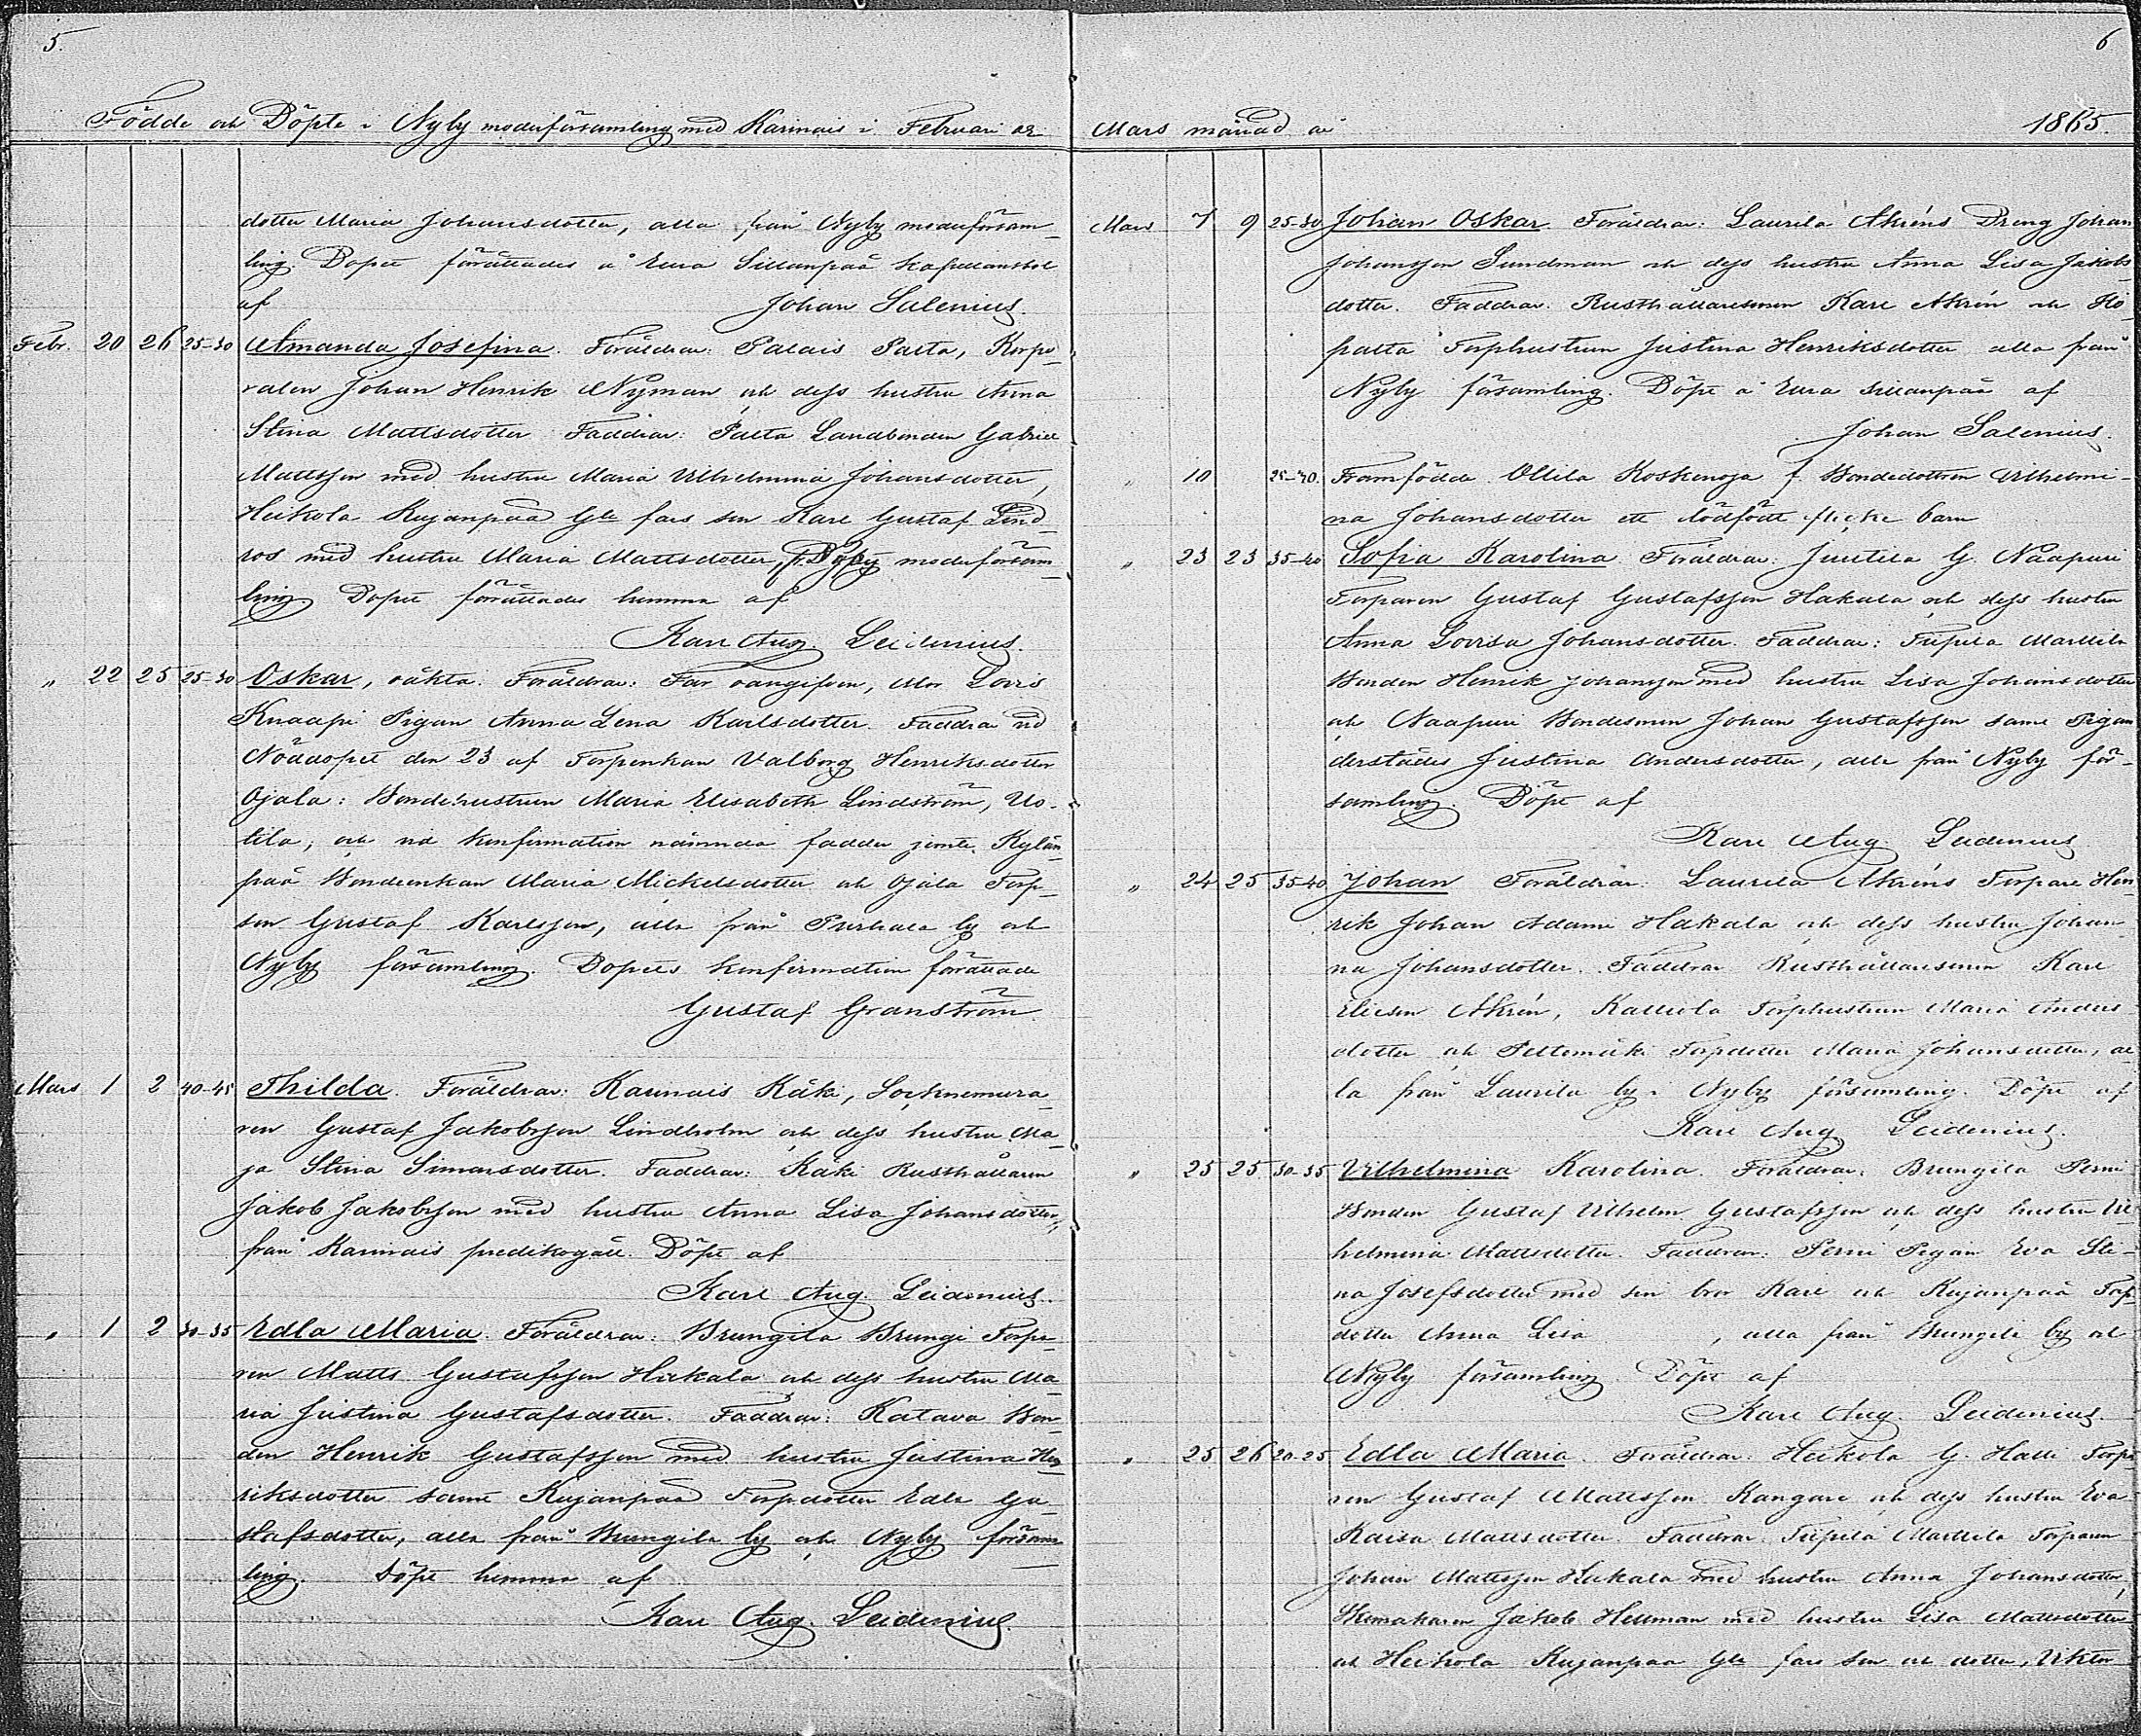 5.
Födde och Döpte i Nyby moderförsamling med Karinais i Februari ock
dotter Maria Johansdotter, alla från Nyby moderförsam-
ling. Dopet förrättades å Eura Sillanpää kapellansbol
af Johan Salenius.
Febr. 20 26 25-30 Amanda Josefina. Föräldrar: Palais Palta, Korpo-
ralen Johan Henrik Nyman och dess hustru Anna
Stina Mattsdotter Faddrar: Palta Landbonden Gabriel
Mattsson med hustru Maria Vilhelmina Johansdotter,
Heikola Kujanpää Gle fars son Karl Gustaf Lind-
ros med hustru Maria Mattsdotter, fr. Nyby moderförsam-
ling Dopet förrättades hemma af
Karl Aug. Leidenius.
" 22 25 25-30 Oskar, oäkta. Föräldrar: Far oangifven, Mor Lovis
Knaapi Pigan Anna Lena Karlsdotter. Faddra vid
Nöddopet den 23 af Torpenkan Valborg Henriksdotter
Ojala: Bondehustrun Maria Elisabeth Lindström, Uo-
tila, och vid konfirmation nämnda fadder jemte Kylän-
pää Bondeenkan Maria Mickelsdotter och Ojala Torp-
son Gustaf Karlsson, alla från Purhala by och
Nyby församling. Dopets konfirmation förrättade
Gustaf Granström
Mars 1 2 40-45 Thilda. Föräldrar: Karinais Käki, Socknemura-
ren Gustaf Jakobsson Lindholm och dess hustru Ma-
ja Stina Simonsdotter. Faddrar: Käki Rusthållaren
Jakob Jakobsson med hustru Anna Lisa Johansdotter,
från Karinais predikogäll. Döpt af
Karl Aug. Leidenius.
" 1 2 30-35 Edla Maria. Föräldrar: Brungila Brungi Torpa-
ren Matts Gustafsson Hakala och dess hustru Ma-
ria Justina Gustafsdotter. Faddrar: Katava Bon-
den Henrik Gustafsson med hustru Justina Hen-
riksdotter samt Kujanpää Torpdotter Edla Gu-
stafsdotter, alla från Brungila by och Nyby försam-
ling. Döpt hemma af
Karl Aug. Leidenius.
6
Mars månad år 1865.
Mars 7 9 25-30 Johan Oskar Föräldrar: Laurila Ahréns Dreng Johan
Johansson Sundman och dess hustru Anna Lisa Jakobs-
dotter. Faddrar. Rusthållaresonen Karl Ahrén och Hö-
palta Torphustrun Justina Henriksdotter alla från
Nyby församling. Döpt å Eura Sillanpää af
Johan Salenius.
" 10 25-30. Framfödde Ollila Koskenoja f. Bondedottren Vilhelmi-
na Johansdotter ett dödfödt flicke barn
" 23 23 35-40 Sofia Karolina Föräldrar: Juntila G. Naapuri
Torparen Gustaf Gustafsson Hakala och dess hustru
Anna Lovisa Johansdotter. Faddrar: Tuipila Marttila
Bonden Henrik Johansson med hustru Lisa Johansdotter
och Naapuri Bondesonen Johan Gustafsson samt Pigan
derstädes Justina Andersdotter, alla från Nyby för-
samling. Döpt af
Karl Aug. Leidenius
" 24 25 35-40 Johan Föräldrar: Laurila Ahréns Torpare Hen-
rik Johan Adami Hakala och dess hustru Johan-
na Johansdotter. Faddrar Rusthållaresonen Karl
Eliesn Ahrén, Kalliola Torphustrun Maria Anders-
dotter och Peltomäki Torpdotter Maria Johansdotter, al-
la från Laurila by i Nyby församling. Döpt af
Karl Aug Leidenius.
" 25 25 30-35 Vilhelmina Karolina. Föräldrar: Brungila Perni
Bonden Gustaf Vilhelm Gustafsson och dess hustru Vil-
helmina Mattsdotter. Faddrar: Perni Pigan Eva Sti-
na Josefsdotter med sin bror Karl och Kujanpää Torp-
dotter Anna Lisa , alla från Brungila by och
Nyby församling Döpt af
Karl Aug. Leidenius.
" 25 26 20-25 Edla Maria. Föräldrar: Heikola G. Halli Torpa-
ren Gustaf Mattsson Kangare och dess hustru Eva
Kaisa Mattsdotter Faddrar Tuipila Marttila Torparen
Johan Mattsson Hakala med hustru Anna Johansdotter,
Skomakaren Jakob Hellman med hustru Lisa Mattsdotter
och Heikola Kujanpää Gle fars son och dotter, Viktor